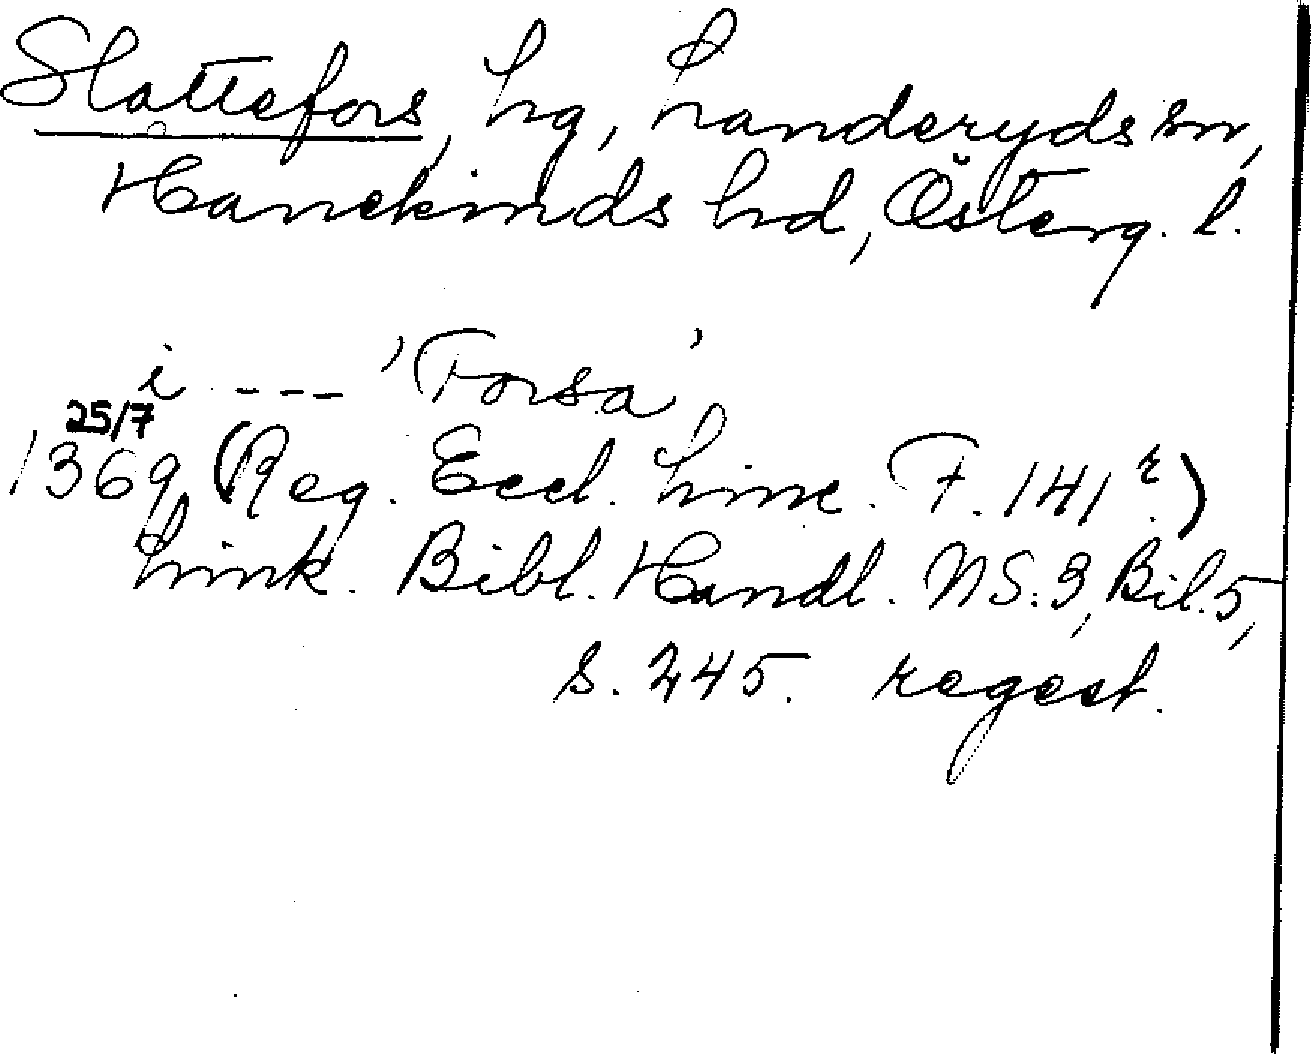 Slattefors, hg, Landeryds sn,
Hanekinds hd, Österg. l.
i --- 'Forsa'
25/7
1369 (Reg. Eccl. Linc. F. 141 r)
Link. Bibl. Handl. NS. 3, Bil. 5,
s. 245. regest.